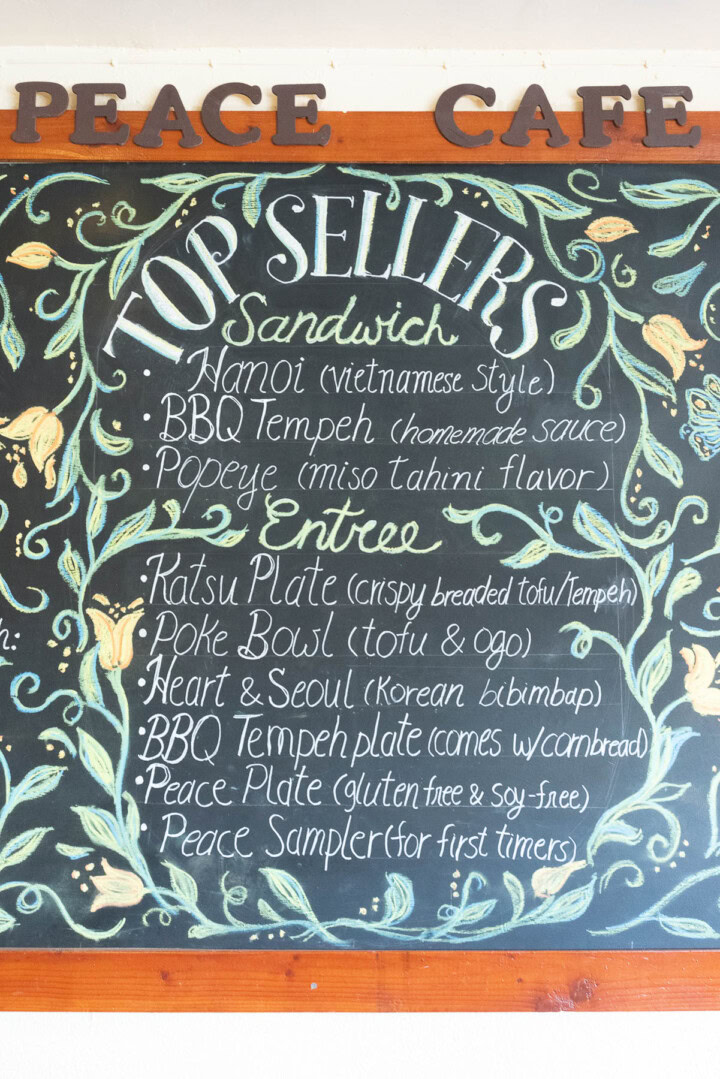 PEACE CAFE
TOP SELLERS
Sandwich
• Hanoi (vietnamese style)
• BBQ Tempeh (homemade sauce)
• Popeye (miso tahini flavor)
Entree
• Katsu Plate (crispy breaded tofu/Tempeh)
• Poke Bowl (tofu & ogo)
• Heart & Seoul (Korean bibimbap)
• BBQ Tempeh plate (comes w/cornbread)
• Peace Plate (gluten free & soy-free)
• Peace Sampler (for first timers)